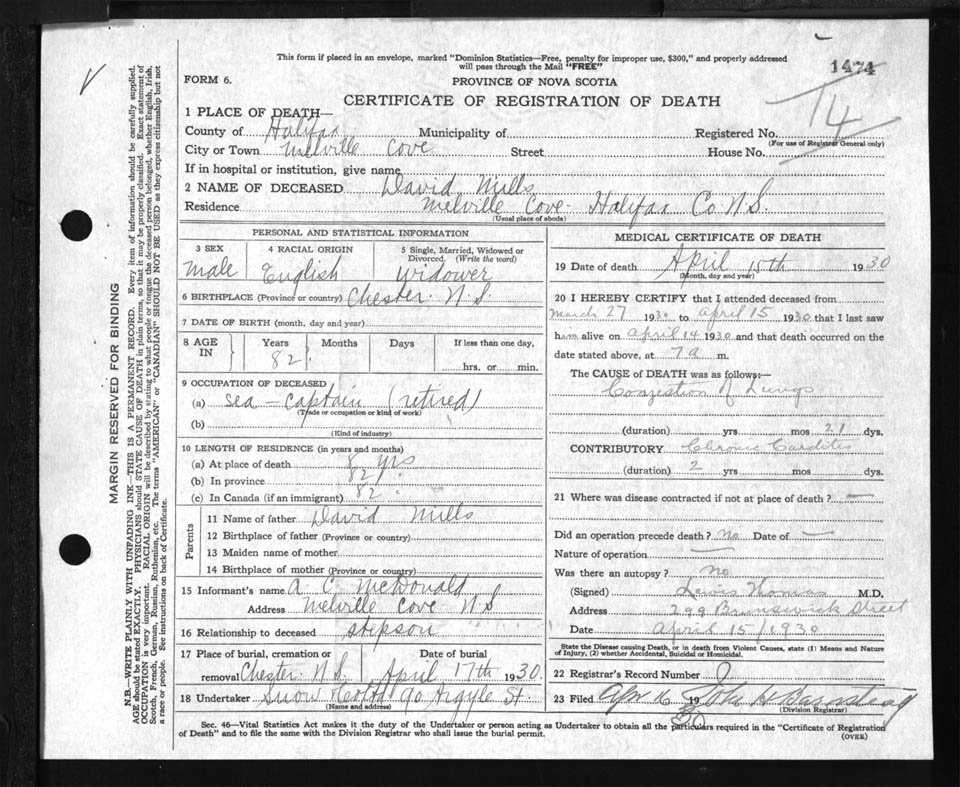 This form if placed in an envelope, marked "Dominion Statistics—Free, penalty for improper use, $300," and properly addressed
will pass through the Mail "FREE"
1474
FORM 6.
PROVINCE OF NOVA SCOTIA
14
CERTIFICATE OF REGISTRATION OF DEATH
1 PLACE OF DEATH—
County of Halifax Municipality of Registered No.
(For use of Registrar General only)
City or Town Melville Cove Street House No.
If in hospital or institution, give name
2 NAME OF DECEASED David Mills
Residence Melville Cove - Halifax Co. N.S.
(Usual place of abode)
PERSONAL AND STATISTICAL INFORMATION
3 SEX 4 RACIAL ORIGIN 5 Single, Married, Widowed or
Divorced. (Write the word)
Male English widower
6 BIRTHPLACE (Province or country) Chester. N.S.
7 DATE OF BIRTH (month, day and year)
8 AGE IN Years Months Days If less than one day,
82 hrs. or min.
9 OCCUPATION OF DECEASED
(a) sea-captain (retired)
(Trade or occupation or kind of work)
(b)
(Kind of industry)
10 LENGTH OF RESIDENCE (in years and months)
(a) At place of death 8 yrs
(b) In province 82
(c) In Canada (if an immigrant) 82
Parents
11 Name of father David Mills
12 Birthplace of father (Province or country)
13 Maiden name of mother
14 Birthplace of mother (Province or country)
15 Informant's name A. C. McDonald
Address Melville Cove N S
16 Relationship to deceased stepson
17 Place of burial, cremation or Date of burial
removal Chester N.S. April 17th 1930
18 Undertaker Snow & Co Ltd 90 Argyle St.
(Name and address)
MEDICAL CERTIFICATE OF DEATH
19 Date of death April 15th 1930
(Month, day and year)
20 I HEREBY CERTIFY that I attended deceased from
March 27 1930 to April 15 1930 that I last saw
him alive on April 14 1930 and that death occurred on the
date stated above, at 7 a m.
The CAUSE of DEATH was as follows:—
Congestion of Lungs
(duration) yrs mos 21 dys.
CONTRIBUTORY Chronic Carditis
(duration) 2 yrs mos dys.
21 Where was disease contracted if not at place of death? —
Did an operation precede death? No Date of —
Nature of operation —
Was there an autopsy? no
(Signed) Lewis Thomas M.D.
Address 299 Brunswick Street
Date April 15/1930
State the Disease causing Death, or in death from Violent Causes, state (1) Means and Nature
of Injury, (2) whether Accidental, Suicidal or Homicidal.
22 Registrar's Record Number
23 Filed Apr 16 1930 John H
(Division Registrar)
Sec. 46—Vital Statistics Act makes it the duty of the Undertaker or person acting as Undertaker to obtain all the particulars required in the "Certificate of Registration
of Death" and to file the same with the Division Registrar who shall issue the burial permit.
(OVER)
MARGIN RESERVED FOR BINDING
N.B.—WRITE PLAINLY WITH UNFADING INK—THIS IS A PERMANENT RECORD. Every item of information should be carefully supplied.
AGE should be stated EXACTLY. PHYSICIANS should STATE CAUSE OF DEATH in plain terms, so that it may be properly classified. Exact statement of
OCCUPATION is very important. RACIAL ORIGIN will be described by stating to what people or tongue the deceased person belonged, whether English, Irish,
Scotch, French, German, Russian, Ruthenian, etc. The terms "AMERICAN" or "CANADIAN" SHOULD NOT BE USED as they express citizenship but not
a race or people. See instructions on back of Certificate.